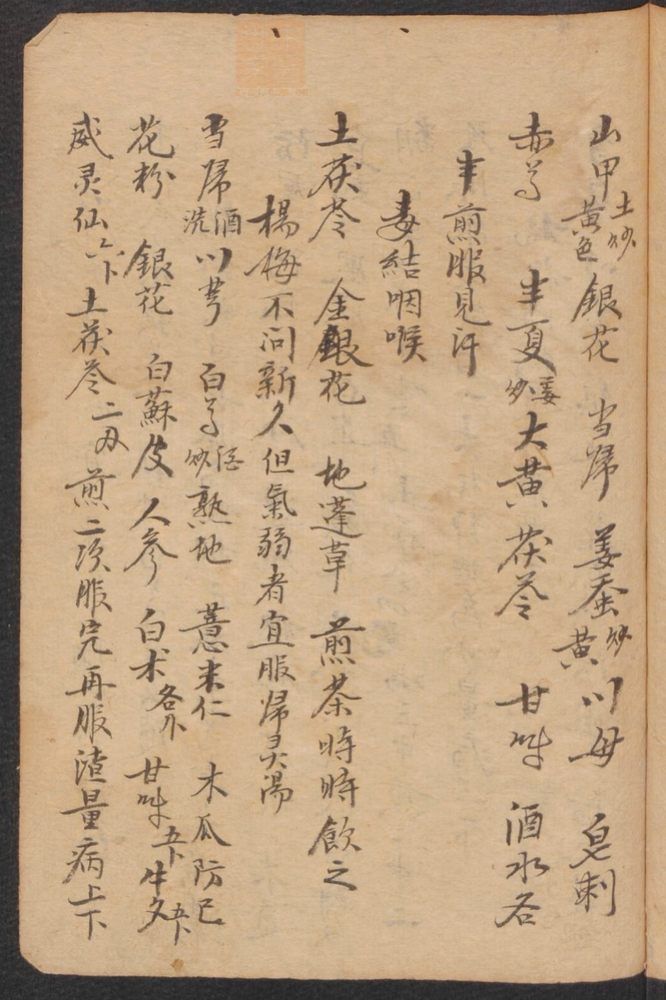 山甲土炒黃色 銀花 当歸 姜蚕炒黃 川母 皂刺
赤芍 半夏姜炒 大黃 茯苓 甘艸 酒水各
半煎服見汗
毒結咽喉
土茯苓 金銀花 地蓬草 煎茶時時飲之
楊梅不问新久但氣弱者宜服歸灵湯
当歸酒洗 川芎 白芍酒炒 熟地 薏米仁 木瓜 防已
花粉 銀花 白蘇皮 人參 白术各卜 甘艸五卜 牛夕五卜
威灵仙六卜 土茯苓二刄 煎二次服完再服渣量病上下